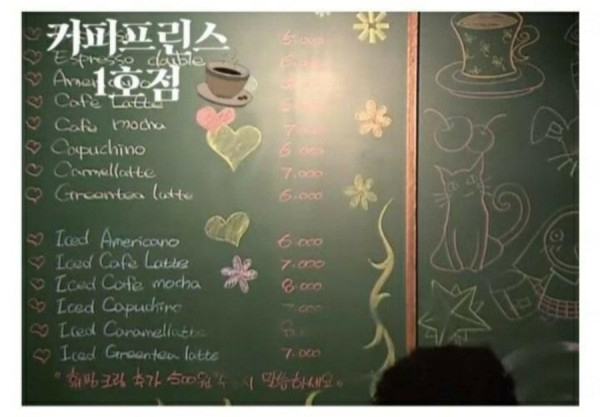 커피프린스
1호점
5.000
Espresso double
Americano
Cafe Latte
Cafe mocha 7.000
Capuchino 6.000
Camellatte 7.000
Greentea latte 6.000
Iced Americano 6.000
Iced Cafe Latte 7.000
Iced Cafe mocha 8.000
Iced Capuchino 7.000
Iced Caramellatte
Iced Greentea latte 7.000
휘핑크림 추가 500원 시 말씀하세요